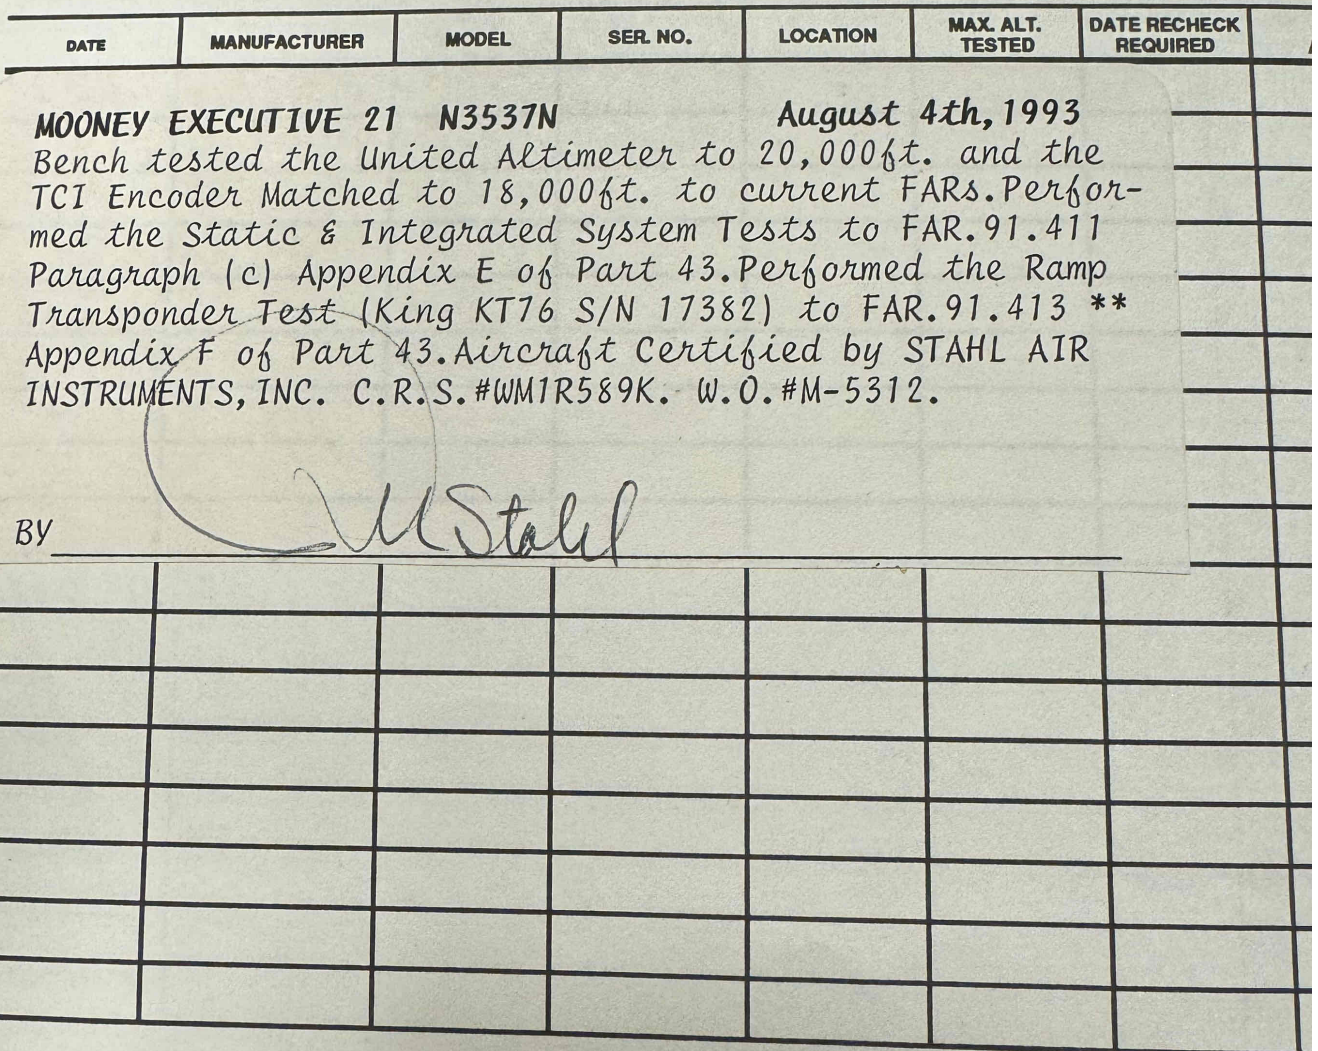 DATE MANUFACTURER MODEL SER. NO. LOCATION MAX. ALT. TESTED DATE RECHECK REQUIRED
MOONEY EXECUTIVE 21 N3537N August 4th, 1993
Bench tested the United Altimeter to 20,000ft. and the
TCI Encoder Matched to 18,000ft. to current FARs.Perfor-
med the Static & Integrated System Tests to FAR.91.411
Paragraph (c) Appendix E of Part 43.Performed the Ramp
Transponder Test (King KT76 S/N 17382) to FAR.91.413 **
Appendix F of Part 43.Aircraft Certified by STAHL AIR
INSTRUMENTS, INC. C.R.S.#WM1R589K. W.O.#M-5312.
M Stahl
BY